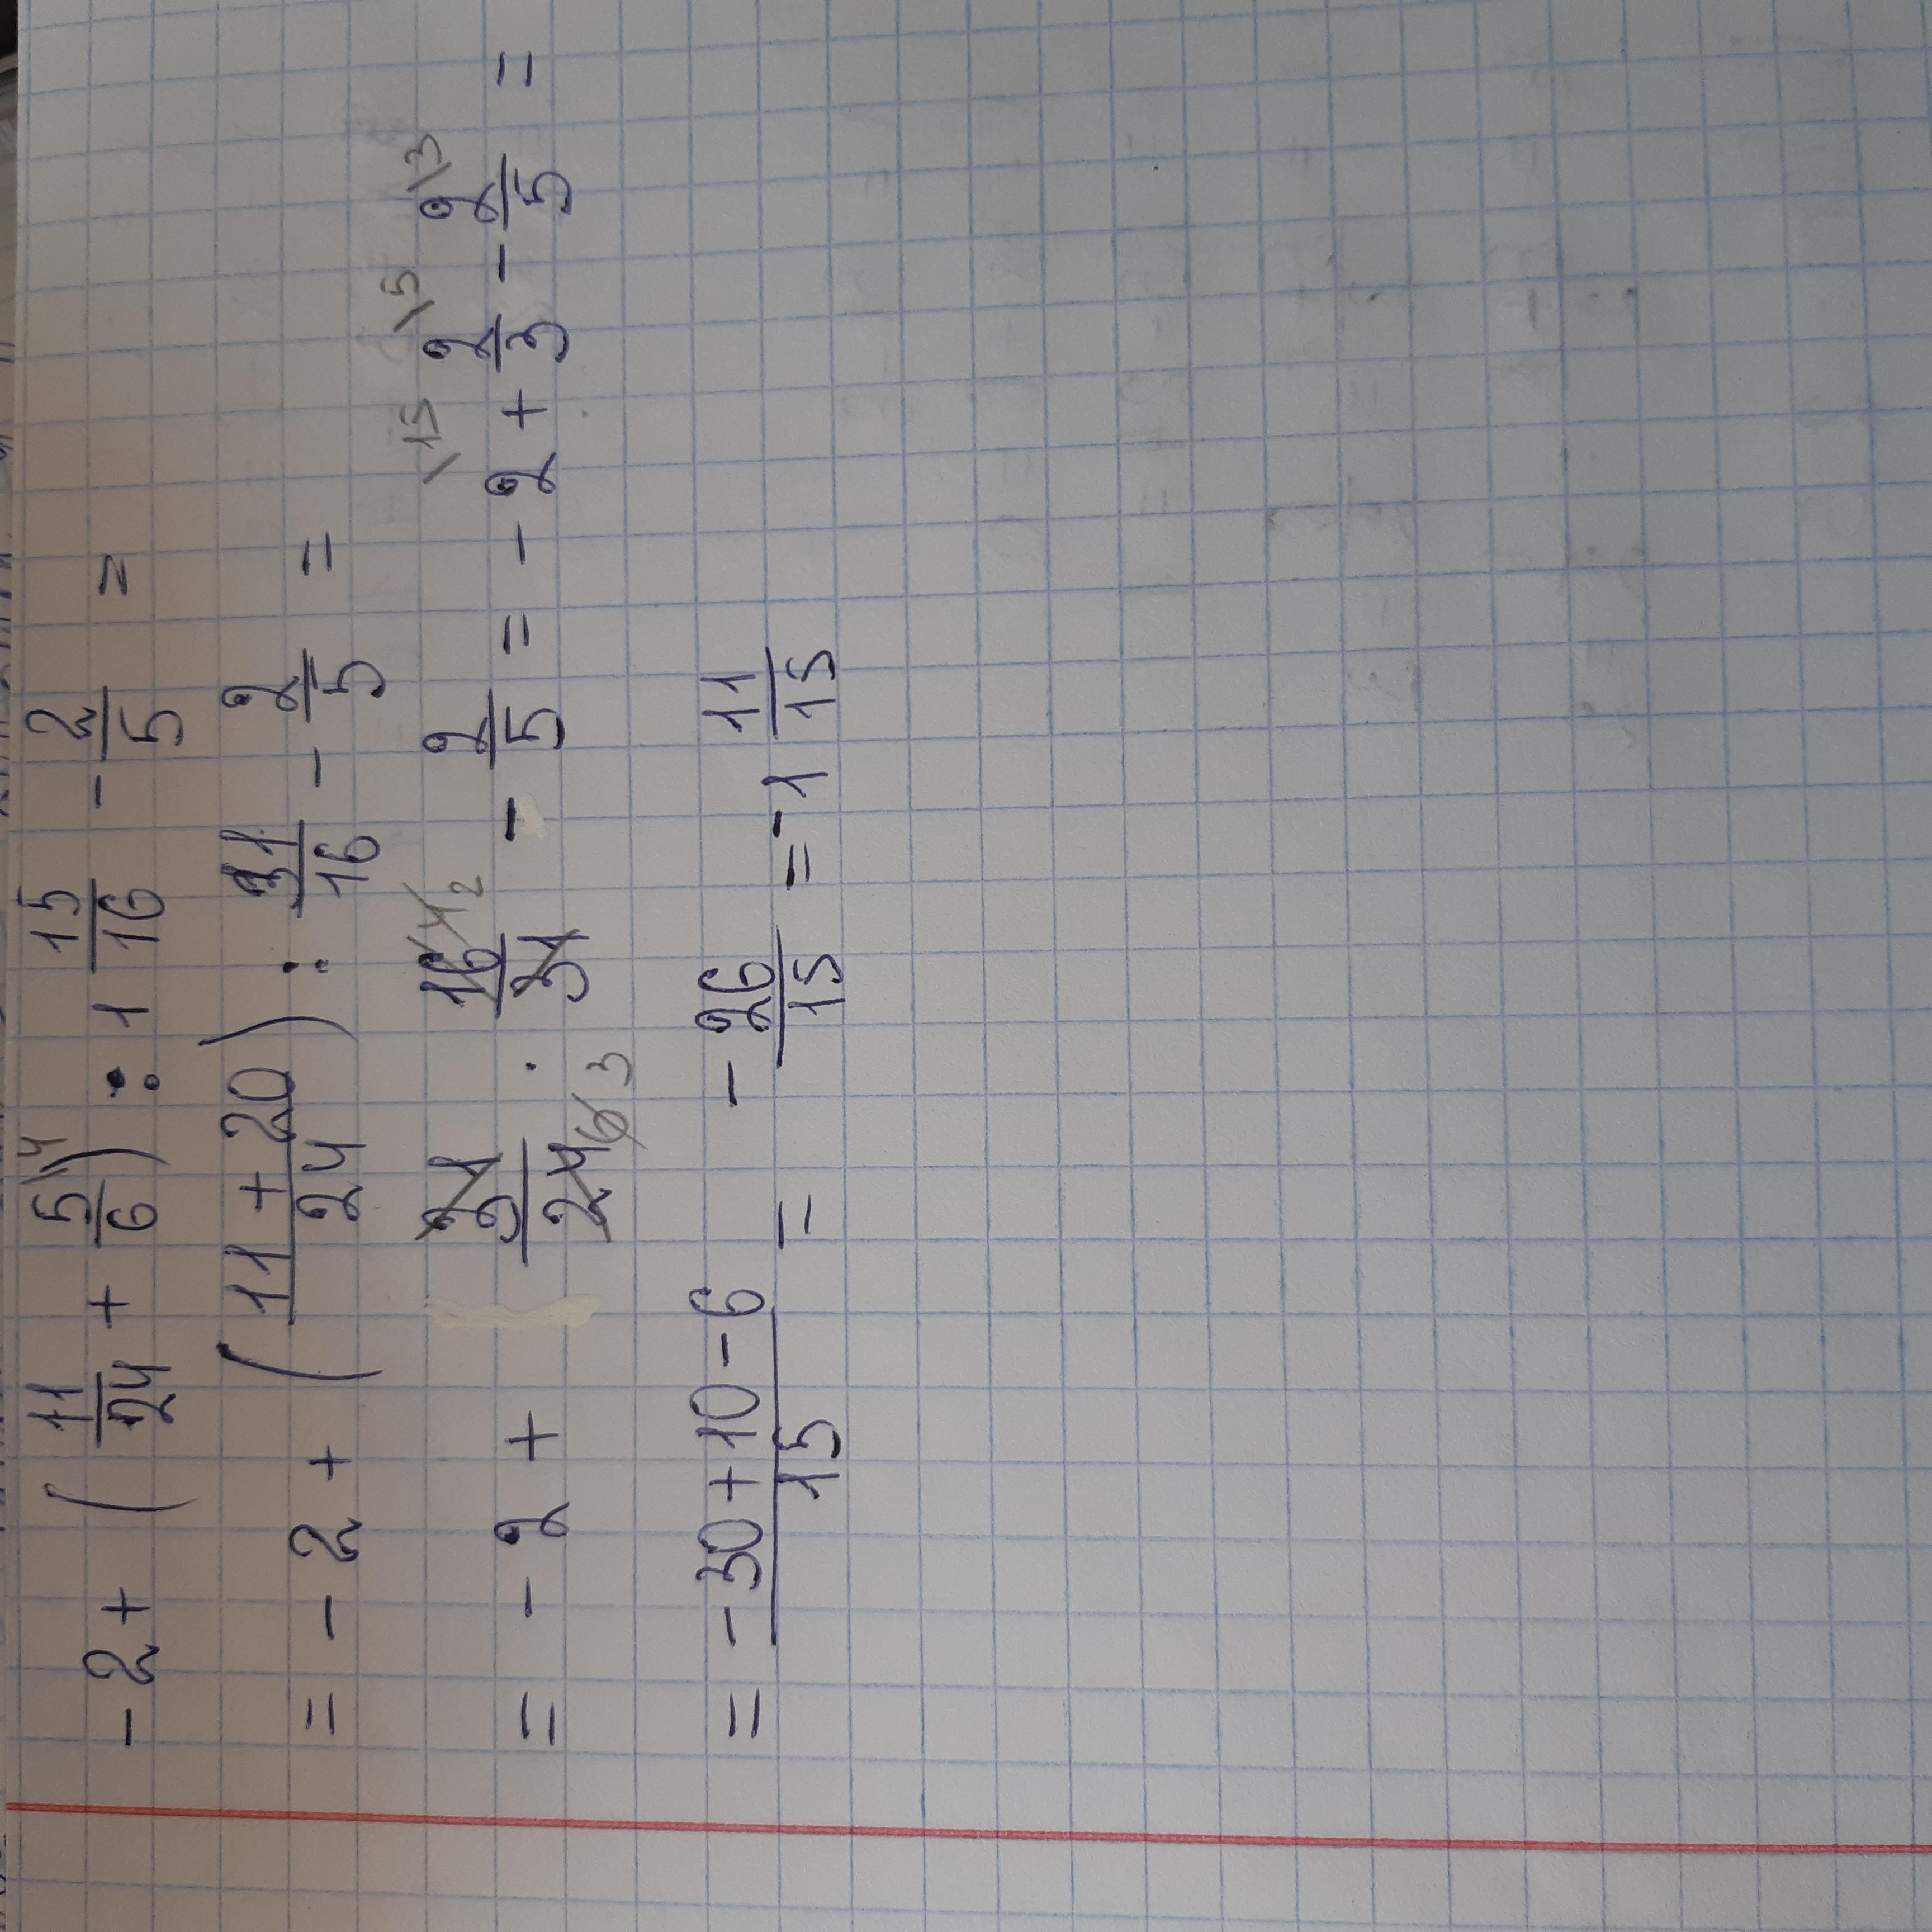 -2 + (11/24 + 5/6 \4) : 1 15/16 - 2/5 =
= - 2 + (11 + 20/24) : 31/16 - 2/5 =
= - 2 + 31/24 6 3 · 16 4 2/31 - 2/5 = - 2 \15 + 2/3 \5 - 2/5 \3 =
= -30 + 10 - 6/15 = - 26/15 = -1 11/15